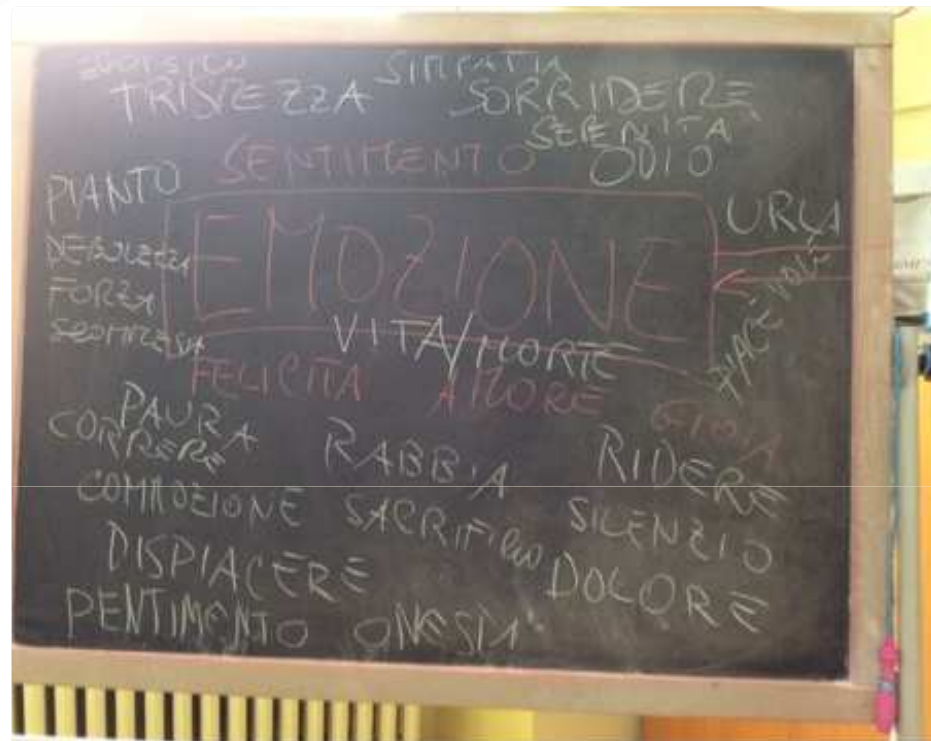 SIMPATIA
TRISTEZZA SORRIDERE
SERENITA
SENTIMENTO ODIO
PIANTO
URLA
EMOZIONE
DEBOLEZZA
FORZA
PIACEVOLE
VITA/MORTE
FELICITA AMORE
GIOIA
PAURA
CORRERE RABBIA RIDERE
COMMOZIONE SACRIFICIO SILENZIO
DISPIACERE DOLORE
PENTIMENTO ONESTA